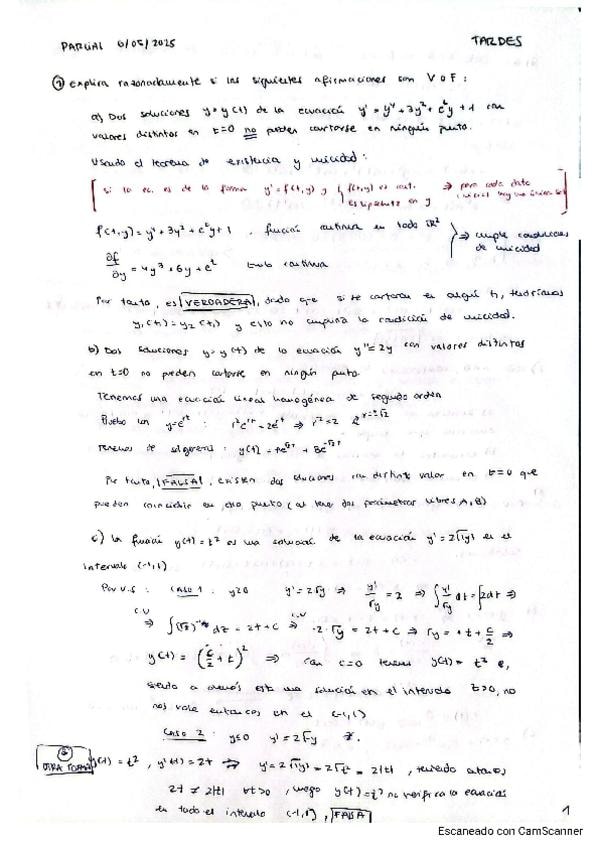 PARCIAL 6/05/2025
TARDES
① Explica razonadamente si las siguientes afirmaciones son V o F:
a) Dos soluciones y=y(t) de la ecuación y' = y⁴+3y²+e^t y+1 con
valores distintos en t=0 no pueden cortarse en ningún punto.
Usando el teorema de existencia y unicidad:
[ si la ec. es de la forma y'=f(t,y) y { f(t,y) es cont. ⇒ para cada dato
es Lipschitz en y inicial hay una única sol ]
f(t,y)=y⁴+3y²+e^t y+1, función continua en todo ℝ² } ⇒ cumple condiciones
de unicidad
∂f/∂y = 4y³+6y+e^t también continua
Por tanto, es VERDADERA, dado que si se cortaran en algún t₁, tendríamos
y₁(t₁)=y₂(t₁) y esto no cumpliría la condición de unicidad.
b) Dos soluciones y=y(t) de la ecuación y''=2y con valores distintos
en t=0 no pueden cortarse en ningún punto.
Tenemos una ecuación lineal homogénea de segundo orden
Pruebo con y=e^rt : r²e^rt = 2e^rt ⇒ r²=2 r=±√2
Tenemos de sol general : y(t) = Ae^√2t + Be^-√2t
Por tanto, FALSA, existen dos soluciones con distinto valor en t=0 que
pueden coincidir en otro punto (al tener dos parámetros libres A, B)
c) La función y(t)=t² es una solución de la ecuación y'=2√|y| en el
intervalo (-1,1)
Por V.S : CASO 1 : y≥0 y'=2√y ⇒ y'/√y = 2 ⇒ ∫ y'/√y dt = ∫2dt ⇒
C.V ⇒ dz = 2t+C C.V ⇒ 2·√y = 2t+C ⇒ √y = t + C/2 ⇒
y(t) = (C/2 + t)² ⇒ con C=0 tenemos y(t) = t²
siendo a menos esta una solución en el intervalo t>0, no
nos vale entonces en el (-1,1)
CASO 2 : y≤0 y'=2√-y
OTRA FORMA y(t)=t², y'(t)=2t ⇒ y'=2√|y| = 2√t² = 2|t|, teniendo entonces
2t ≠ 2|t| ∀t>0, luego y(t)=t² no verifica la ecuación
en todo el intervalo (-1,1), FALSA
1
Escaneado con CamScanner